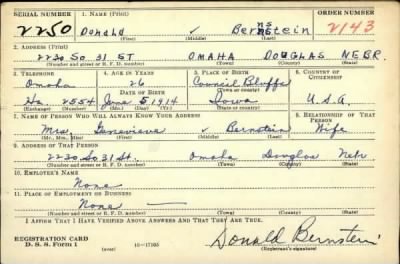 SERIAL NUMBER 1. NAME (Print) ORDER NUMBER
2250 Donald ✓ Bernstein 2143
(First) (Middle) (Last)
2. ADDRESS (Print)
2230 So 31 ST OMAHA DOUGLAS NEBR.
(Number and street or R. F. D. number) (Town) (County) (State)
3. TELEPHONE 4. AGE IN YEARS 5. PLACE OF BIRTH 6. COUNTRY OF CITIZENSHIP
Omaha 26 Council Bluffs
DATE OF BIRTH (Town or county)
Ha 2554 June 5 1914 Iowa U.S.A.
(Exchange) (Number) (Mo.) (Day) (Yr.) (State or country)
7. NAME OF PERSON WHO WILL ALWAYS KNOW YOUR ADDRESS 8. RELATIONSHIP OF THAT PERSON
Mrs. Genevieve ✓ Bernstein Wife
(Mr., Mrs., Miss) (First) (Middle) (Last)
9. ADDRESS OF THAT PERSON
2230 So 31 St. Omaha Douglas Nebr
(Number and street or R. F. D. number) (Town) (County) (State)
10. EMPLOYER'S NAME
None
11. PLACE OF EMPLOYMENT OR BUSINESS
None —
(Number and street or R. F. D. number) (Town) (County) (State)
I AFFIRM THAT I HAVE VERIFIED ABOVE ANSWERS AND THAT THEY ARE TRUE.
REGISTRATION CARD
D. S. S. Form 1 (over) 16—17105 Donald Bernstein
(Registrant's signature)